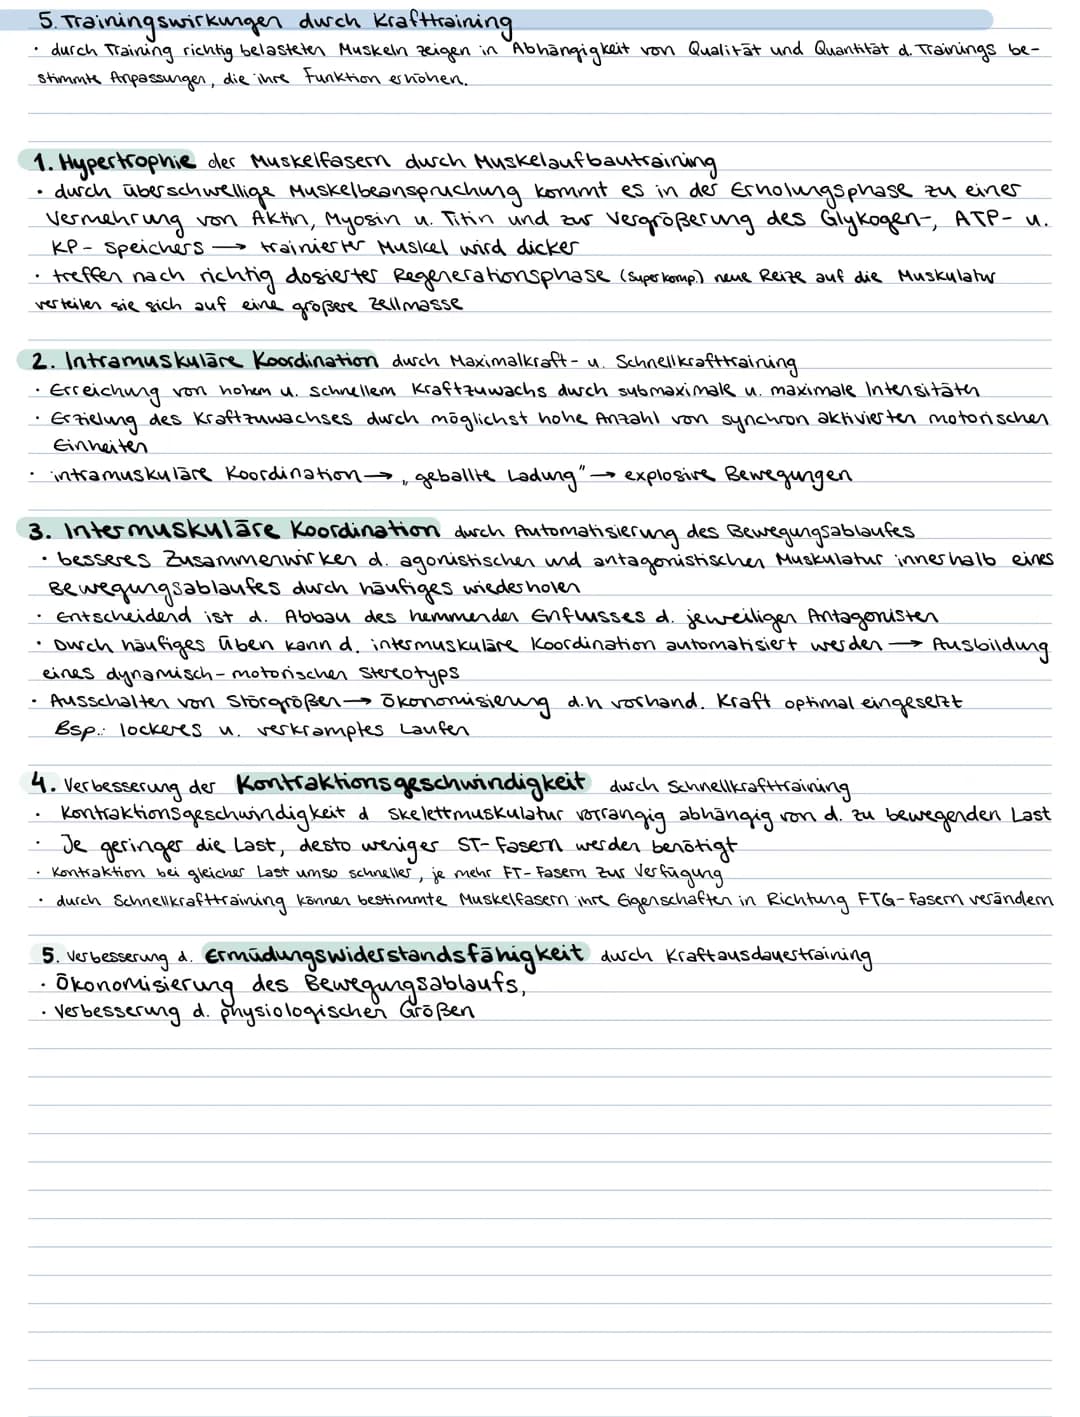 5. Trainingswirkungen durch Krafttraining
· durch Training richtig belasteten Muskeln zeigen in Abhängigkeit von Qualität und Quantität d. Trainings be-
stimmte Anpassungen, die ihre Funktion erhöhen.
1. Hypertrophie der Muskelfasern durch Muskelaufbautraining
· durch überschwellige Muskelbeanspruchung kommt es in der Erholungsphase zu einer
Vermehrung von Aktin, Myosin u. Titin und zur Vergrößerung des Glykogen-, ATP- u.
KP- Speichers → trainierter Muskel wird dicker
· treffen nach richtig dosierter Regenerationsphase (Superkomp.) neue Reize auf die Muskulatur
verteilen sie sich auf eine größere Zellmasse
2. Intramuskuläre Koordination durch Maximalkraft- u. Schnellkrafttraining
· Erreichung von hohem u. schnellem Kraftzuwachs durch submaximale u. maximale Intensitäten
· Erzielung des Kraftzuwachses durch möglichst hohe Anzahl von synchron aktivierten motorischen
Einheiten
· intramuskuläre Koordination → „geballte Ladung" → explosive Bewegungen
3. Intermuskuläre Koordination durch Automatisierung des Bewegungsablaufes
· besseres Zusammenwirken d. agonistischen und antagonistischen Muskulatur innerhalb eines
Bewegungsablaufes durch häufiges wiederholen
· Entscheidend ist d. Abbau des hemmenden Einflusses d. jeweiligen Antagonisten
· Durch häufiges Üben kann d. intermuskuläre Koordination automatisiert werden → Ausbildung
eines dynamisch-motorischen Stereotyps
· Ausschalten von Störgrößen → Ökonomisierung d.h vorhand. Kraft optimal eingesetzt
Bsp.: lockeres u. verkramptes Laufen
4. Verbesserung der Kontraktionsgeschwindigkeit durch Schnellkrafttraining
· Kontraktionsgeschwindigkeit d Skelettmuskulatur vorrangig abhängig von d. zu bewegenden Last
· Je geringer die Last, desto weniger ST-Fasern werden benötigt
· Kontraktion bei gleicher Last umso schneller, je mehr FT-Fasern zur Verfügung
· durch Schnellkrafttraining können bestimmte Muskelfasern ihre Eigenschaften in Richtung FTG-Fasern verändern
5. Verbesserung d. Ermüdungswiderstandsfähigkeit durch Kraftausdauertraining
· Ökonomisierung des Bewegungsablaufs,
· Verbesserung d. physiologischen Größen